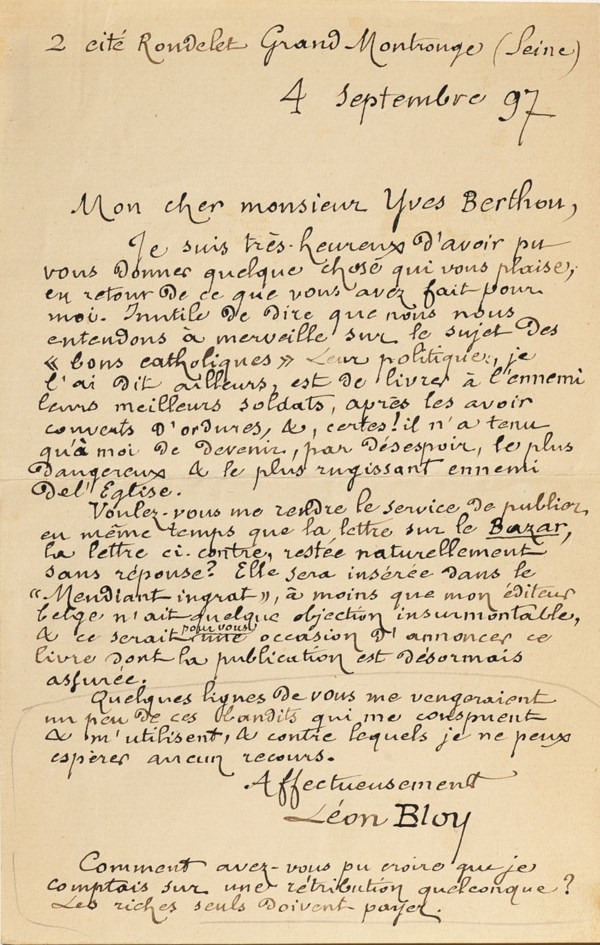 2 cité Rondelet Grand Montrouge (Seine)
4 septembre 97
Mon cher monsieur Yves Berthou,
Je suis très-heureux d'avoir pu
vous donner quelque chose qui vous plaise,
en retour de ce que vous avez fait pour
moi. Inutile de dire que nous nous
entendons à merveille sur le sujet des
« bons catholiques » Leur politique, je
l'ai dit ailleurs, est de livrer à l'ennemi
leurs meilleurs soldats, après les avoir
couverts d'ordures, &, certes! il n'a tenu
qu'à moi de devenir, par désespoir, le plus
dangereux & le plus rugissant ennemi
de l'Eglise.
Voulez-vous me rendre le service de publier,
en même temps que la lettre sur le Bazar,
la lettre ci-contre, restée naturellement
sans réponse? Elle sera insérée dans le
« Mendiant ingrat », à moins que mon éditeur
belge n'ait quelque objection insurmontable,
& ce serait pour vous une occasion d'annoncer ce
livre dont la publication est désormais
assurée.
Quelques lignes de vous me vengeraient
un peu de ces bandits qui me conspuent
& m'utilisent, & contre lesquels je ne peux
espérer aucun recours.
Affectueusement
Léon Bloy
Comment avez-vous pu croire que je
comptais sur une rétribution quelconque?
Les riches seuls doivent payer.